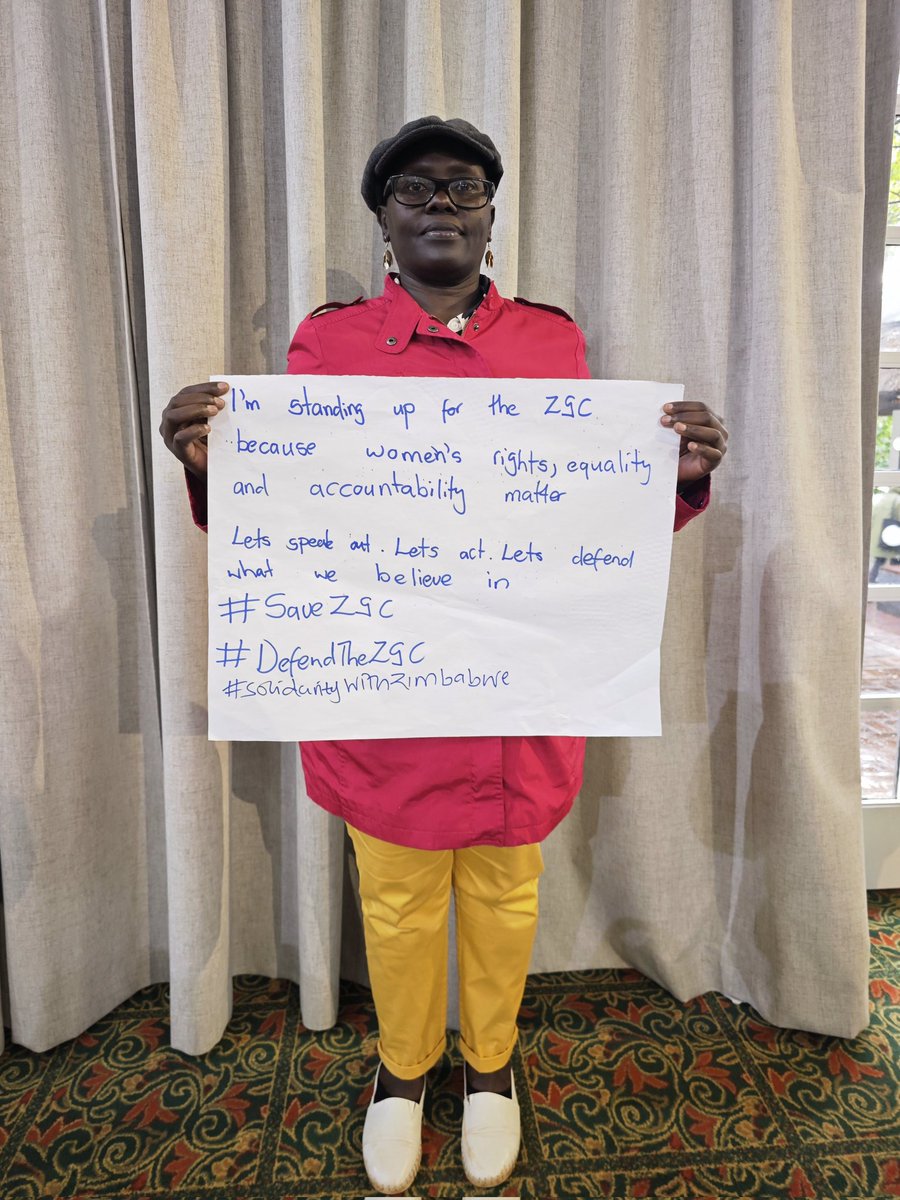 I'm standing up for the ZGC
because women's rights, equality
and accountability matter
Lets speak out. Lets act. Lets defend
what we believe in
#SaveZGC
#DefendTheZGC
#solidaritywithzimbabwe